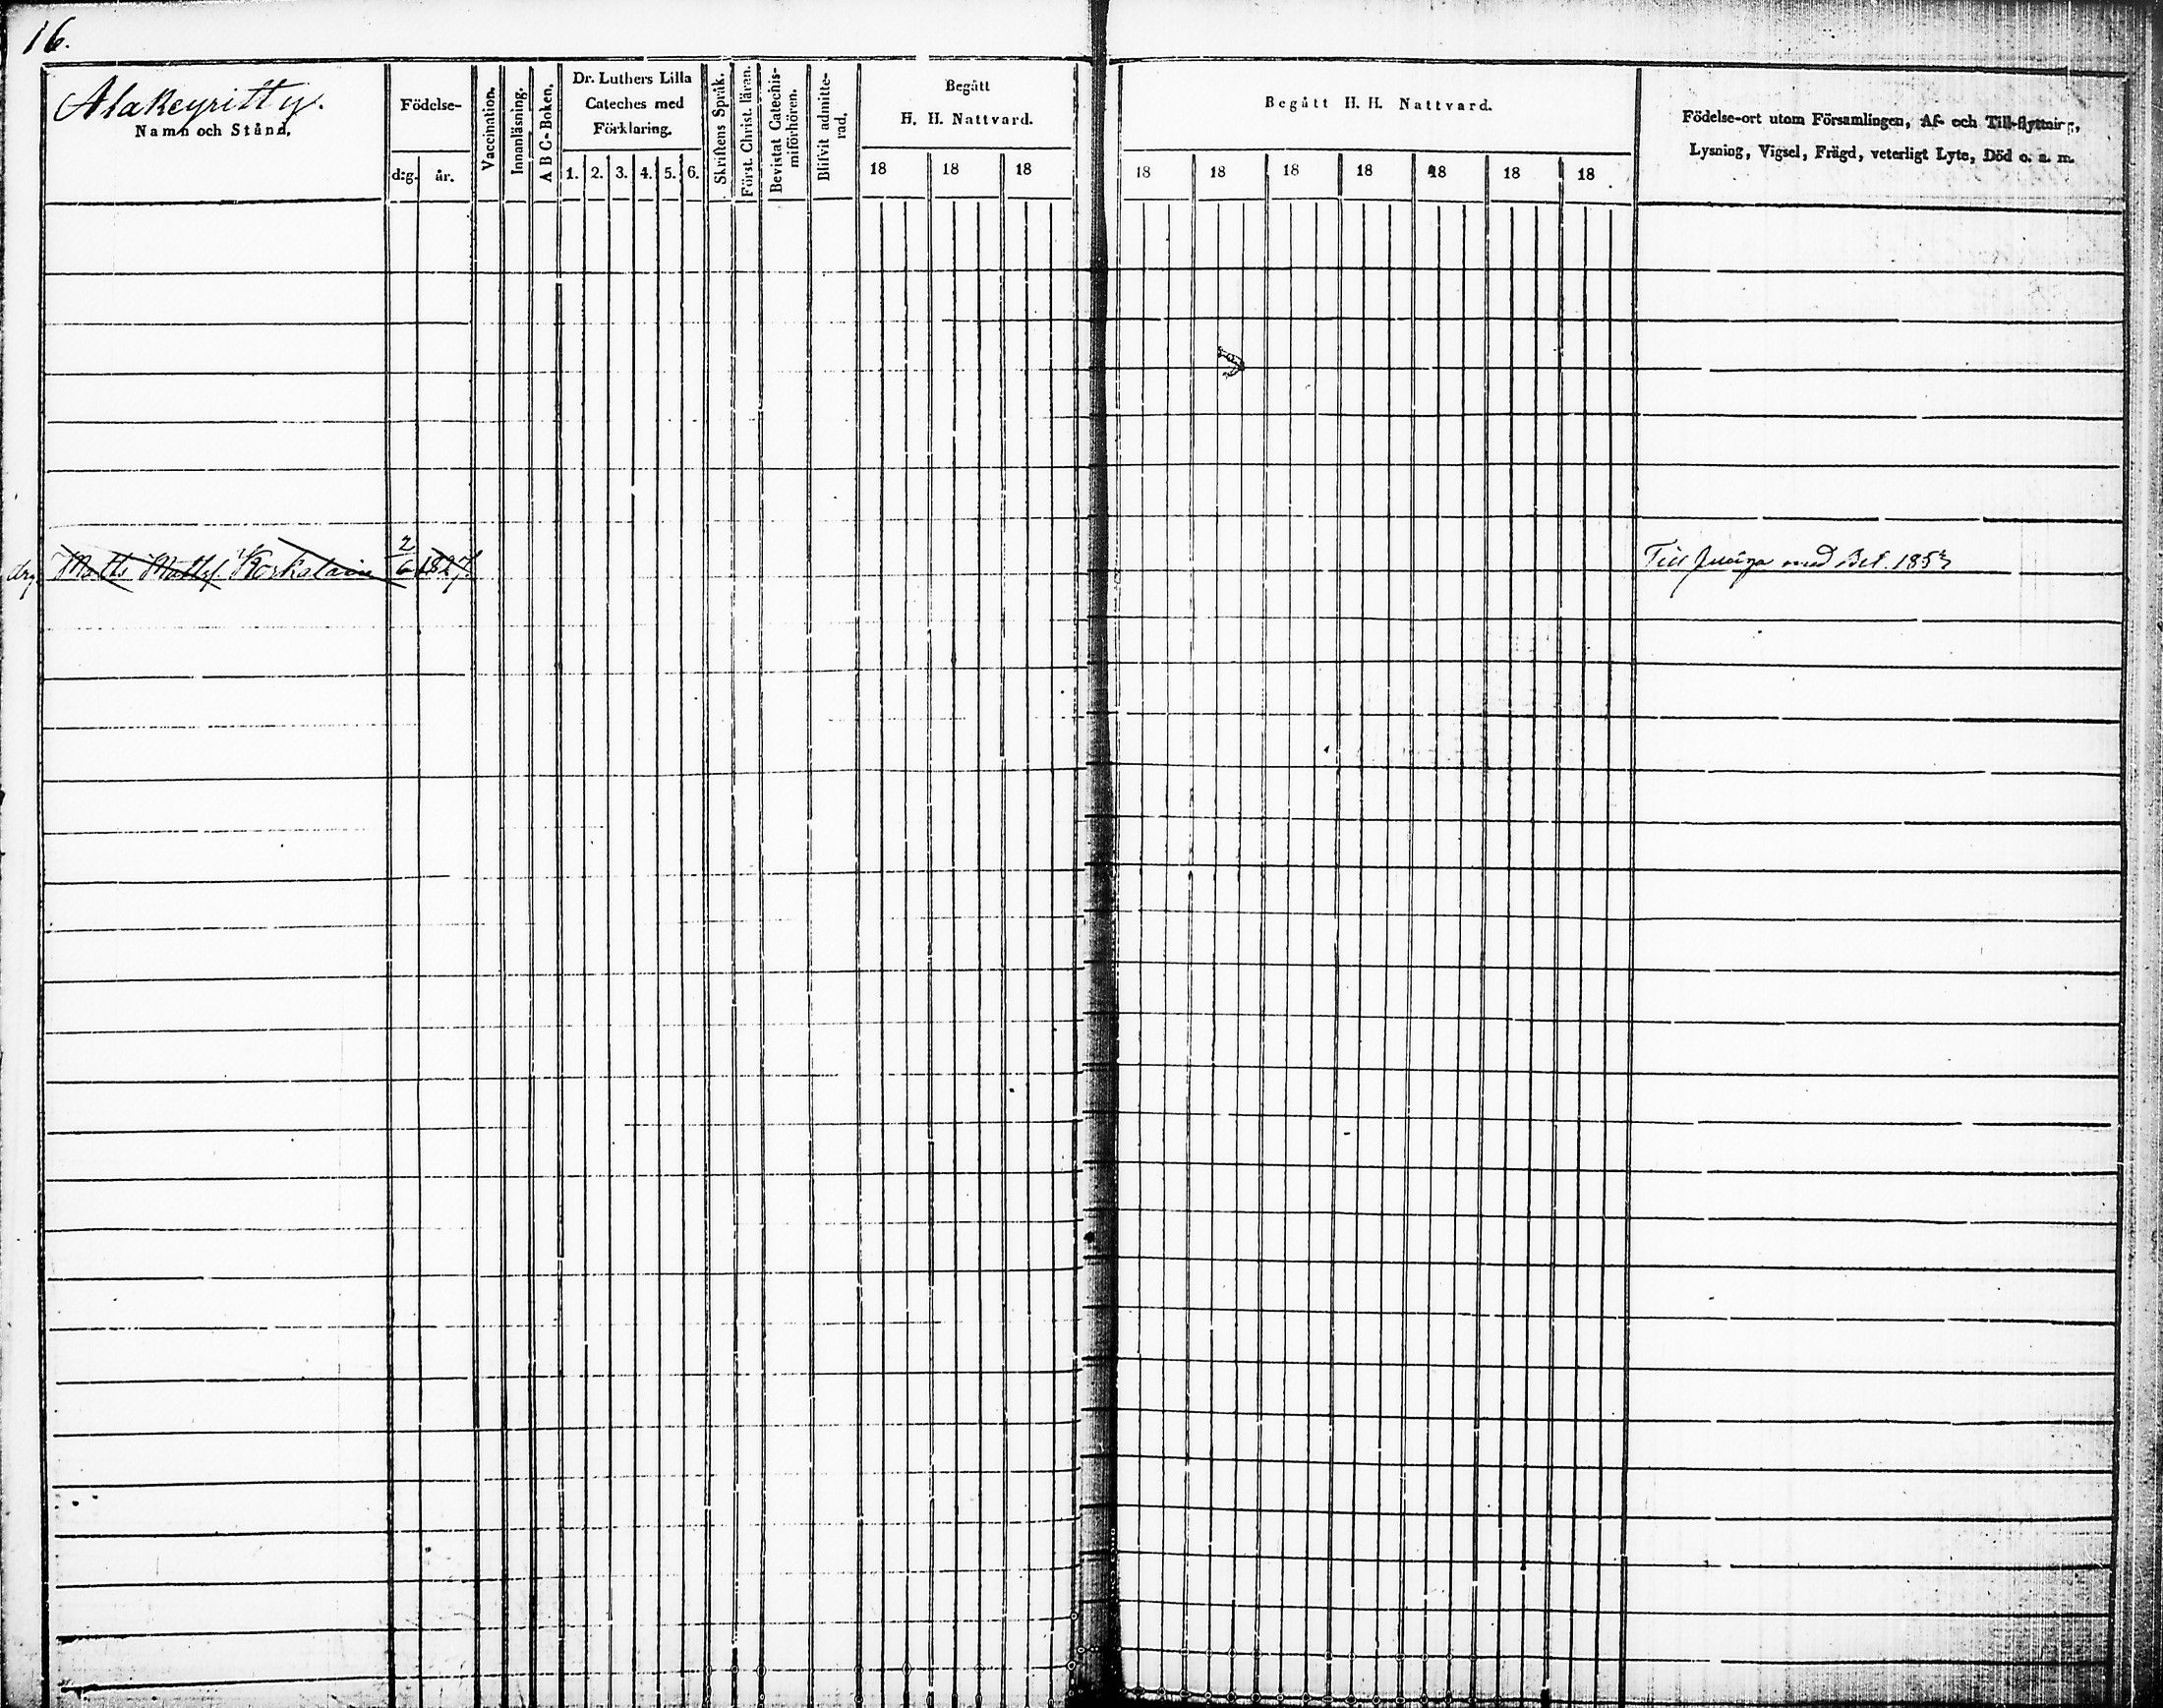 16.
Alakeyritty.
Namn och Stånd.
Födelse-
d:g. år.
Vaccination.
Innanläsning.
A B C-Boken.
Dr. Luthers Lilla
Cateches med
Förklaring.
1. 2. 3. 4. 5. 6.
Skriftens Språk.
Först. Christ. läran.
Bevistat Catechis-
miförhören.
Blifvit admitte-
rad.
Begått
H. H. Nattvard.
18 18 18
Begått H. H. Nattvard.
18 18 18 18 18 18 18
Födelse-ort utom Församlingen, Af- och Till-flyttning,
Lysning, Vigsel, Frägd, veterligt Lyte, Död o. a. m.
drg. Matts Mattsf. 2/6 1827.
Till med Bet. 1853